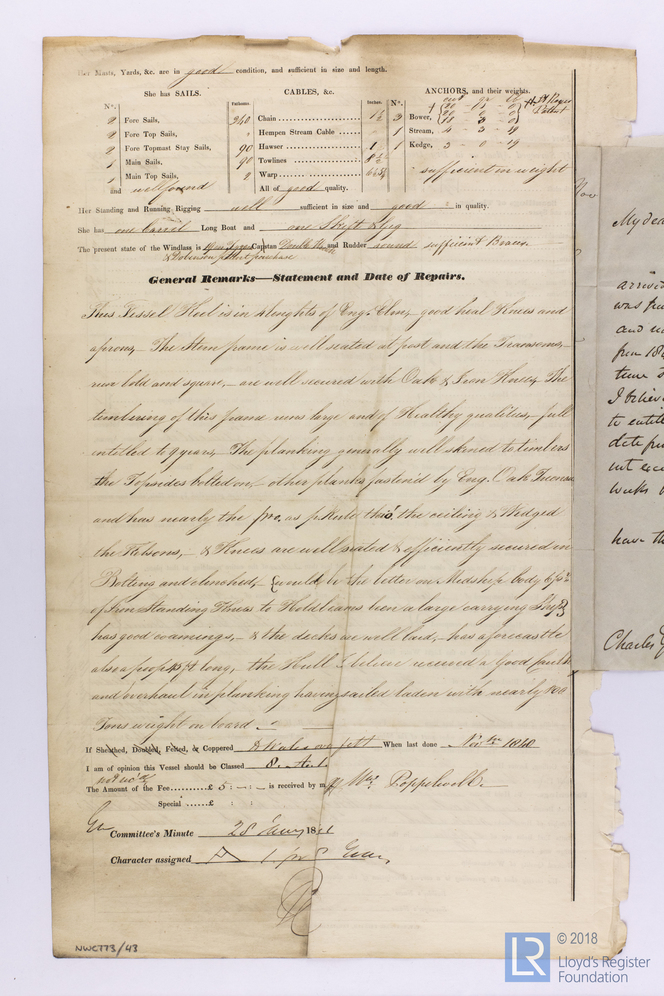 Her Masts, Yards, &c. are in good condition, and sufficient in size and length.
She has SAILS.
N°.
2 Fore Sails,
2 Fore Top Sails,
2 Fore Topmast Stay Sails,
1 Main Sails,
1 Main Top Sails,
and well found
CABLES, &c.
Fathoms.
Inches.
240 Chain 1½
" Hempen Stream Cable
90 Hawser
90 Towlines
2 Warp
All of good quality.
ANCHORS, and their weights.
N°.
Bower,
1 Stream, 4 - 3 - 19
1 Kedge, 3 - 0 - 19
sufficient in weight
Her Standing and Running Rigging well sufficient in size and good in quality.
She has one barrel Long Boat and one Skiff & Gig
The present state of the Windlass is Capstan and Rudder sound sufficient Braces
General Remarks—Statement and Date of Repairs.
This Vessel Keel is in 4 lenghts of Eng. Elm, good heal Knees and
aprons, - The Stern frame is well seated at post and the Transoms,
run bold and square, - are well secured with Oak & Iron Knees, The
timbering of this frame runs large and of Healthy qualities, - full
intitled to 9 years, - The planking generally well to timbers
the Topsides bolted on, - other planks fastend by Eng. Oak
and has nearly the as the ceiling & Wedged
the Kelsons, - & Knees are well seated & efficiently secured in
Bolting and clenched, - would be the better on Midship body 6 prs
of Iron Standing Knees to Hold beams been a large carrying Ship
has good coamings, - & the decks are well laid, - has a forecastle
also a poop 45 ft long, - the Hull I beleive received a Good
and overhaul in planking having sailed laden with nearly 800
Tons weight on board -
If Sheathed, Doubled, Felted, or Coppered & Wales over felt When last done Novr 1840
I am of opinion this Vessel should be Classed 8. A 1.
not recd
The Amount of the Fee........£ 5 : - : - is received by me, Wm Popplewell.
Special ......£ : :
Committee's Minute 28 Jany 1841
Character assigned A 1
NWCT73/43
You
My dea
arrived
was
and
from 18
time
I believe
to entitle
date
not exce
weeks
have th
Charles G
LR
© 2018
Lloyd's Register
Foundation